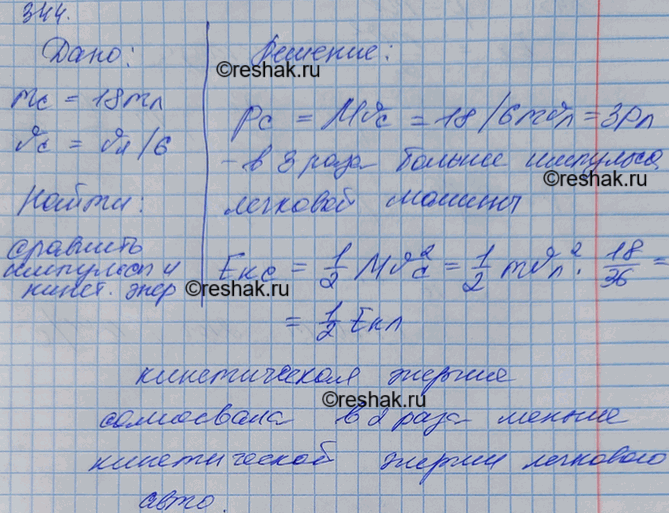 344.
Дано:
mс = 18mл
υс = υл/6
Найти:
сравнить
импульсы и
кинет. энер
Решение:
©reshak.ru
Pс = Mυс = 18/6mυл = 3Pл
- в 3 раза больше импульса
©reshak.ru
легковой машины
Eкс = 1/2 Mυс² = 1/2 mυл² · 18/36 =
©reshak.ru
= 1/2 Eкл
кинетическая энергия
©reshak.ru
самосвала в 2 раза меньше
кинетической энергии легкового
авто.